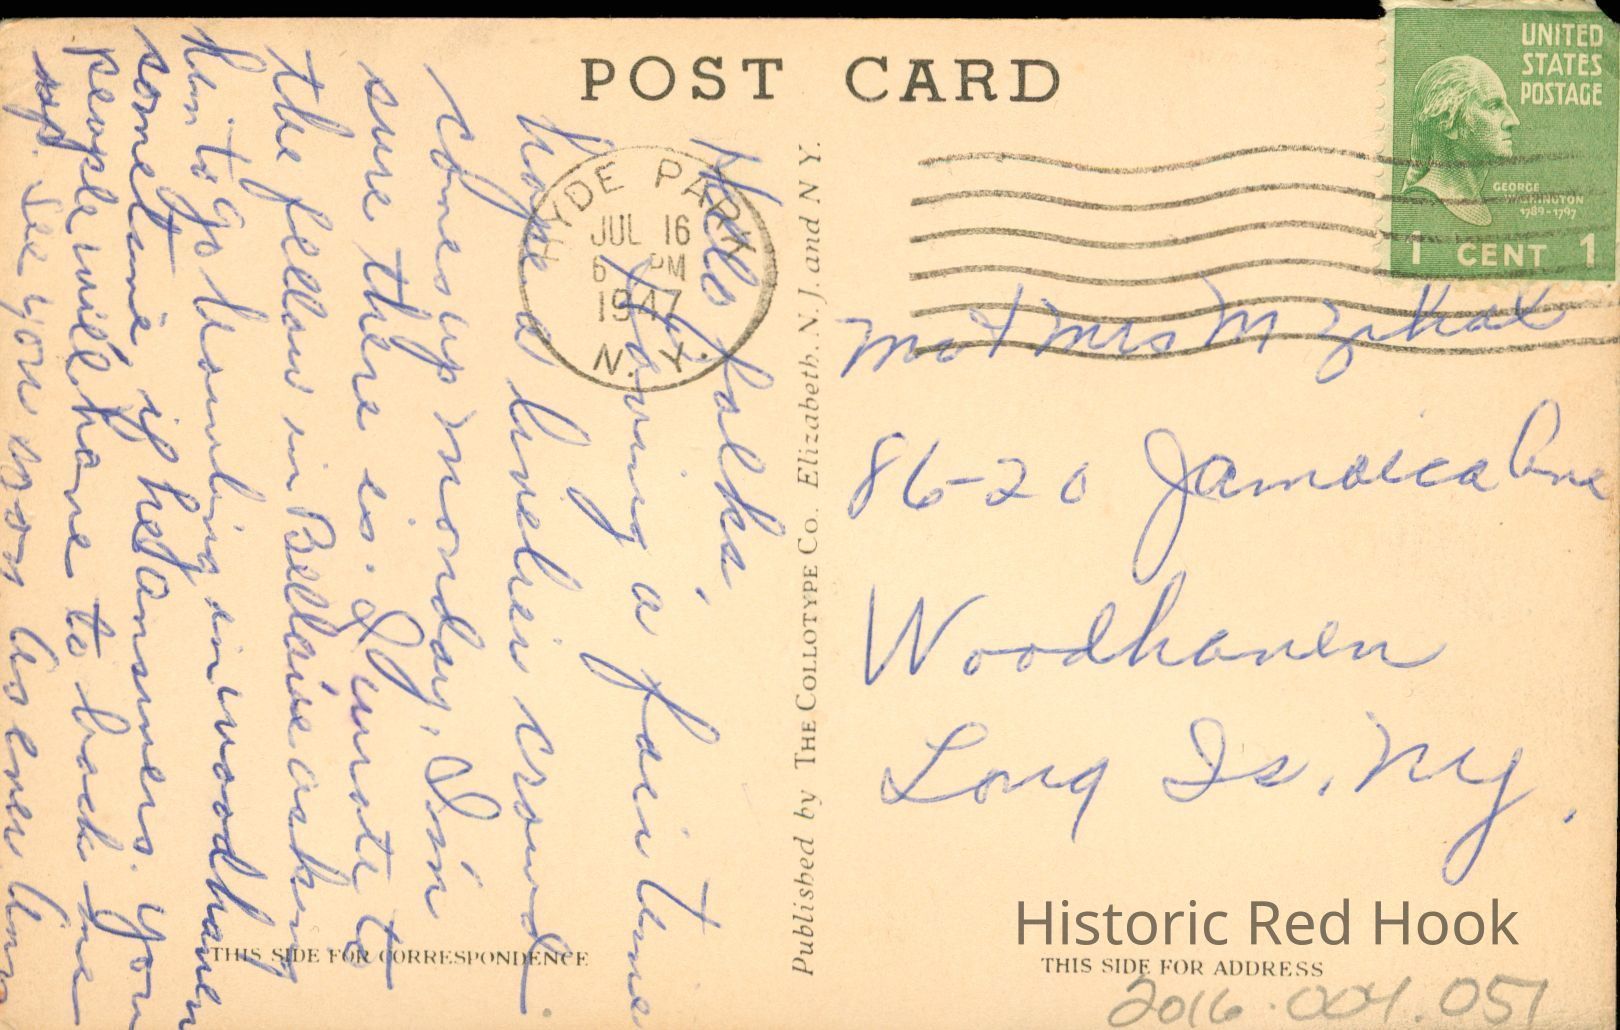 POST CARD
UNITED
STATES
POSTAGE
GEORGE
WASHINGTON
1789-1797
1 CENT 1
HYDE PARK
JUL 16
6 PM
1947
N.Y.
Hello folks,
Having a fair time
hope a livelier crowd
comes up monday, I'm
sure there is. I wrote to
the fellow in Bellaire asking
him to go bowling in woodhaven
sometime, if he answers. your
people will have to back me
up. See you soon As ever
Published by THE COLLOTYPE Co. Elizabeth, N.J. and N.Y.
Mr + Mrs M
86-20 Jamaica Ave
Woodhaven
Long Is, NY.
THIS SIDE FOR CORRESPONDENCE
Historic Red Hook
THIS SIDE FOR ADDRESS
2016.004.051